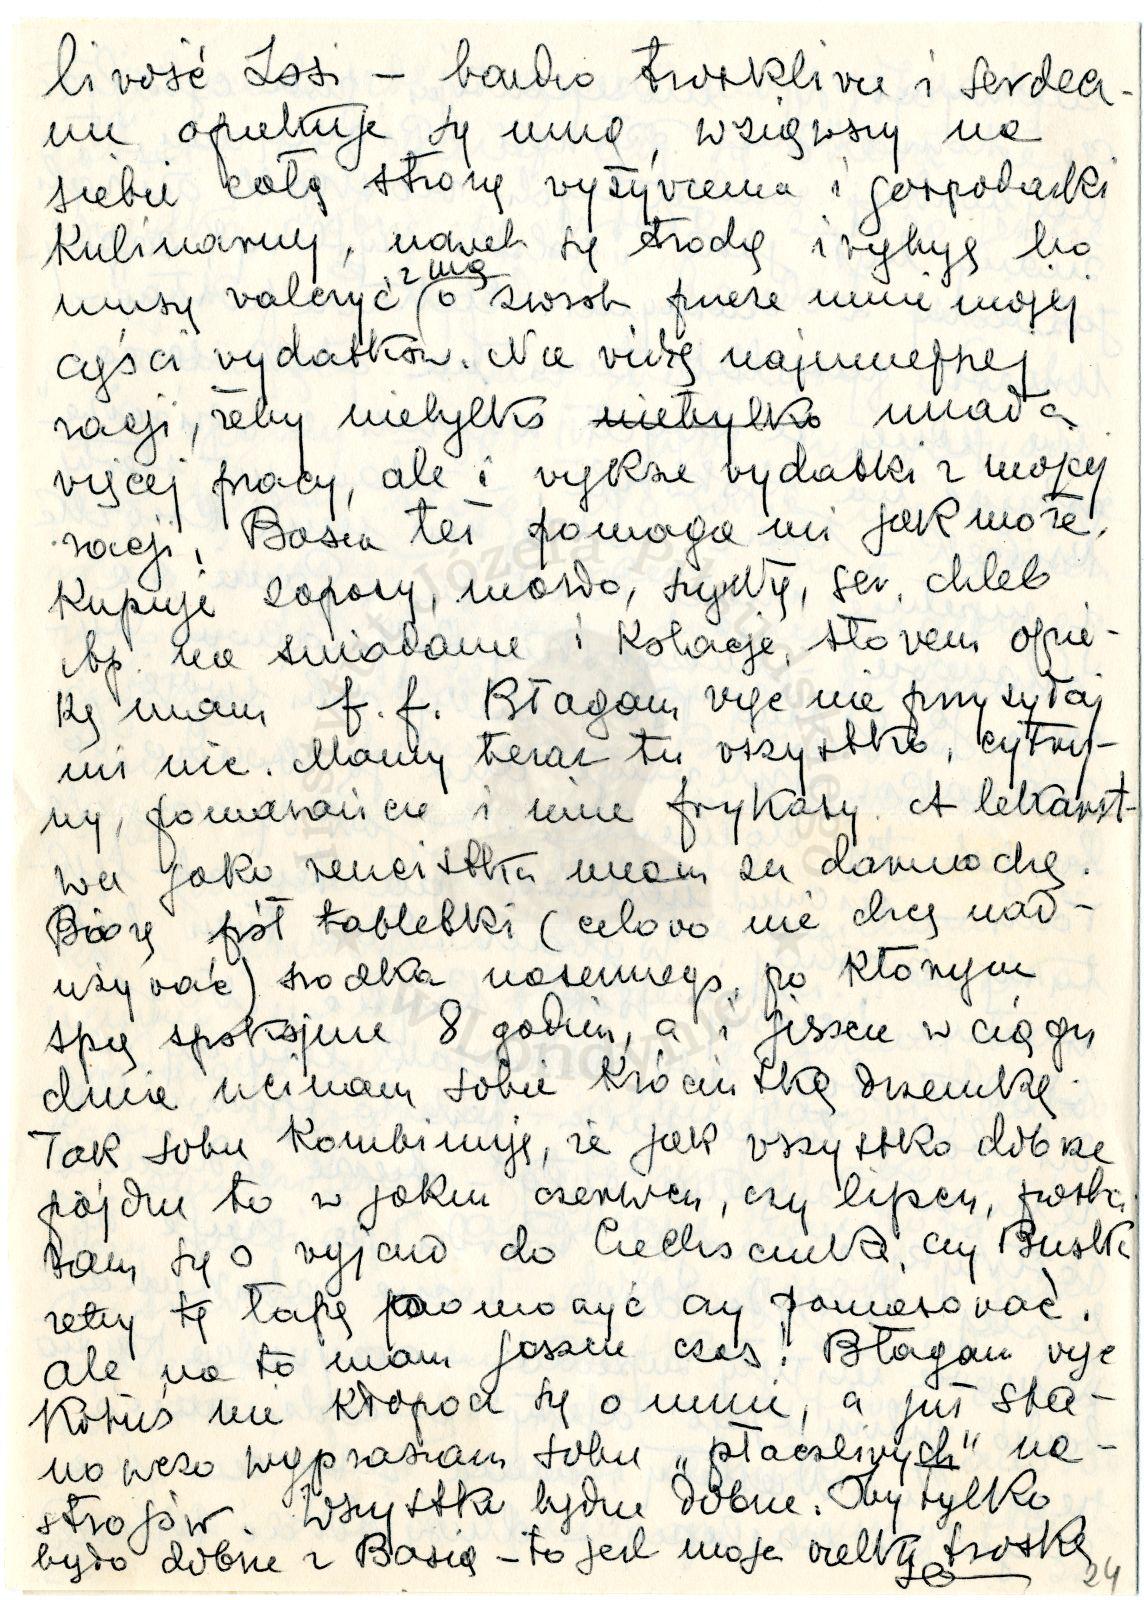 livość Zosi – bardzo troskliwie i serdecz-
nie opiekuje się mną, wziąwszy na
siebie całą stronę wyżywienia i gospodarki
Kulinarnej, nawet się trodzę i rybyę bo
muszę walczyć z nią o zwrot przeze mnie mojej
części wydatków. Nie widzę najmniejszej
racji, żeby nietylko nietylko miała
więcej pracy, ale i wyksze wydatki z mojej
racji. Basia też pomaga mi jak może.
Kupuje zapasy, masło, szynkę, ser, chleb
itp. na śniadanie i Kolację, słowem opie-
kę mam f. f. Błagam więc nie przysyłaj
mi nic. Mamy teraz tu wszystko, cytry-
ny, pomarańcze i inne frykasy. A lekarst-
wa jako rencistka mam za darmochę.
Biorę pół tabletki (celowo nie chcę nad-
używać) środka nasennego, po którym
śpię spokojnie 8 godzin, a i jeszcze w ciągu
dnia ucinam sobie króciutką drzemkę.
Tak sobie kombinuję, że jak wszystko dobrze
pójdzie to w jakim czerwcu, czy lipcu, posta
ram się o wyjazd do Ciechocinka, czy Buska
żeby tę łapę pomoczyć czy pomasować.
Ale na to mam jeszcze czas! Błagam więc
Kotuś nie kłopocz się o mnie, a już sta-
nowczo wypraszam sobie „płaczliwych" na-
strojów. Wszystko będzie dobrze. Oby tylko
było dobrze z Basią – to jest moja wielka troska
24
Józefa Piłsudskiego
w Londynie